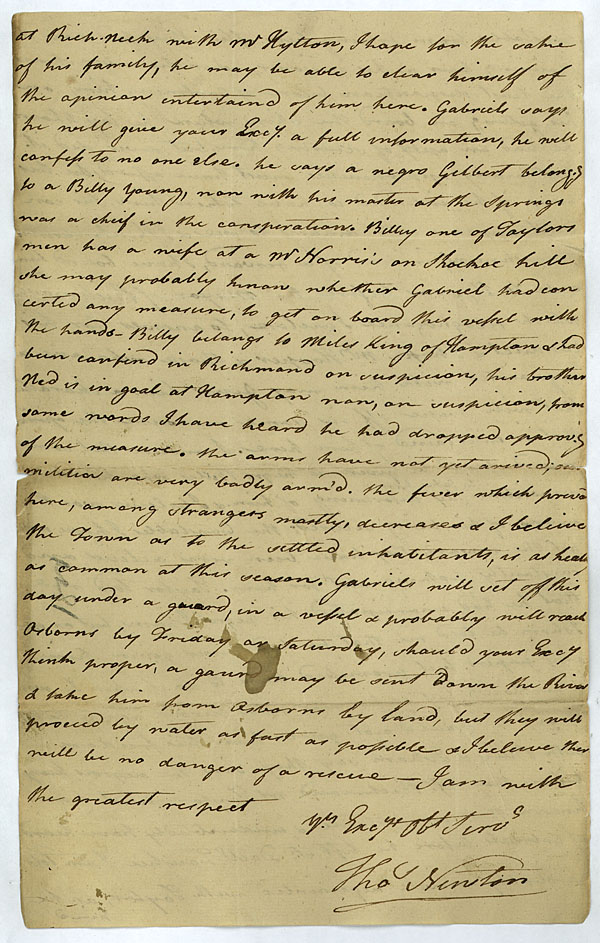 at Rich-neck with Mr Hylton, I hope for the sake
of his family, he may be able to clear himself of
the opinion entertaind of him here. Gabriels says
he will give your Excy. a full information, he will
confess to no one else. he says a negro Gilbert belongg
to a Billy Young, now with his master at the Springs
was a cheif in the conspiration. Billy one of Taylors
men has a wife at a Mr Norris's on Shockoe hill
she may probably know whether Gabriel had con
certed any measure, to get on board this vessel with
the hands - Billy belongs to Miles King of Hampton & had
been confind in Richmond on suspicion, his brother
Ned is in goal at Hampton now, on suspicion, from
some words I have heard he had dropped approvg
of the measure. the arms have not yet arived; our
militia are very badly arm'd. the fever which preva
here, among strangers mostly, decreases & I believe
the Town as to the settled inhabitants, is as healt
as common at this season. Gabriels will set off this
day under a guard, in a vessel & probably will reach
Osborns by Friday or Saturday, should your Excy
think proper, a gaurd may be sent down the River
& take him from Osborns by land, but they will
proceed by water as fast as possible & I believe there
will be no danger of a rescue — I am with
the greatest respect
Yrs Excys Obt Servs
Thos Newton